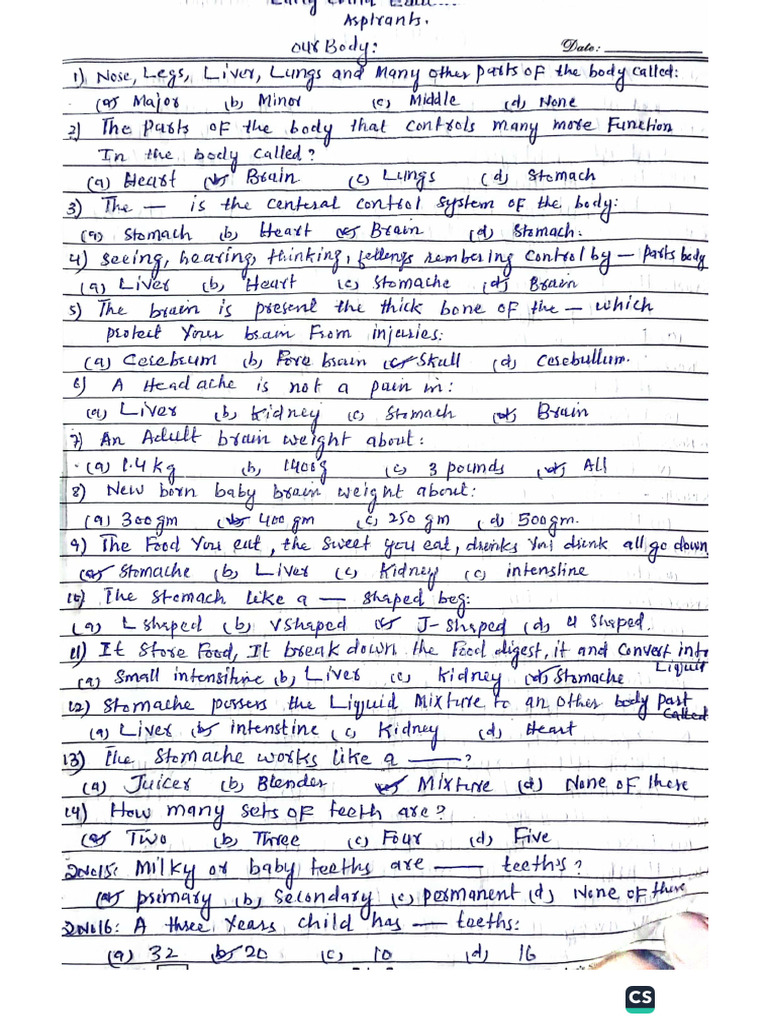 Aspirants.
our Body:
Date:
1) Nose, Legs, Liver, Lungs and Many other parts of the body called:
(a) Major (b) Minor (c) Middle (d) None
2) The Parts of the body that controls many more Function
In the body called?
(a) Heart (b) Brain (c) Lungs (d) Stomach
3) The — is the centeral control system of the body:
(a) Stomach (b) Heart (c) Brain (d) Stomach.
4) Seeing, hearing, thinking, fellengs rembering control by — parts body
(a) Liver (b) Heart (c) Stomache (d) Brain
5) The brain is present the thick bone of the — which
protect your brain From injuries:
(a) Cerebrum (b) Fore brain (c) Skull (d) Cerebullum.
6) A Headache is not a pain in:
(a) Liver (b) Kidney (c) Stomach (d) Brain
7) An Adult brain weight about:
(a) 1.4 kg (b) 1400g (c) 3 pounds (d) All
8) New born baby brain weight about:
(a) 300gm (b) 400 gm (c) 250 gm (d) 500gm.
9) The Food You eat, the sweet you eat, drinks You drink all go down
(a) Stomache (b) Liver (c) Kidney (c) intenstine
10) The Stomach like a — shaped beg:
(a) L shaped (b) V Shaped (c) J-Shaped (d) U Shaped.
11) It Store Food, It break down the Food digest, it and Convert into
Liquit
(a) Small intensitine (b) Liver (c) Kidney (d) Stomache
12) Stomache possers the Liquid Mixture to an other body part
called
(a) Liver (b) intenstine (c) Kidney (d) Heart
13) The Stomache works like a —?
(a) Juicer (b) Blender (c) Mixture (d) None of these
14) How many sets of teeth are?
(a) Two (b) Three (c) Four (d) Five
QNo15: Milky or baby teeths are — teeth's?
(a) primary (b) Secondary (c) permanent (d) None of these
QNo16: A three Years child has — teeths:
(a) 32 (b) 20 (c) 10 (d) 16
CS